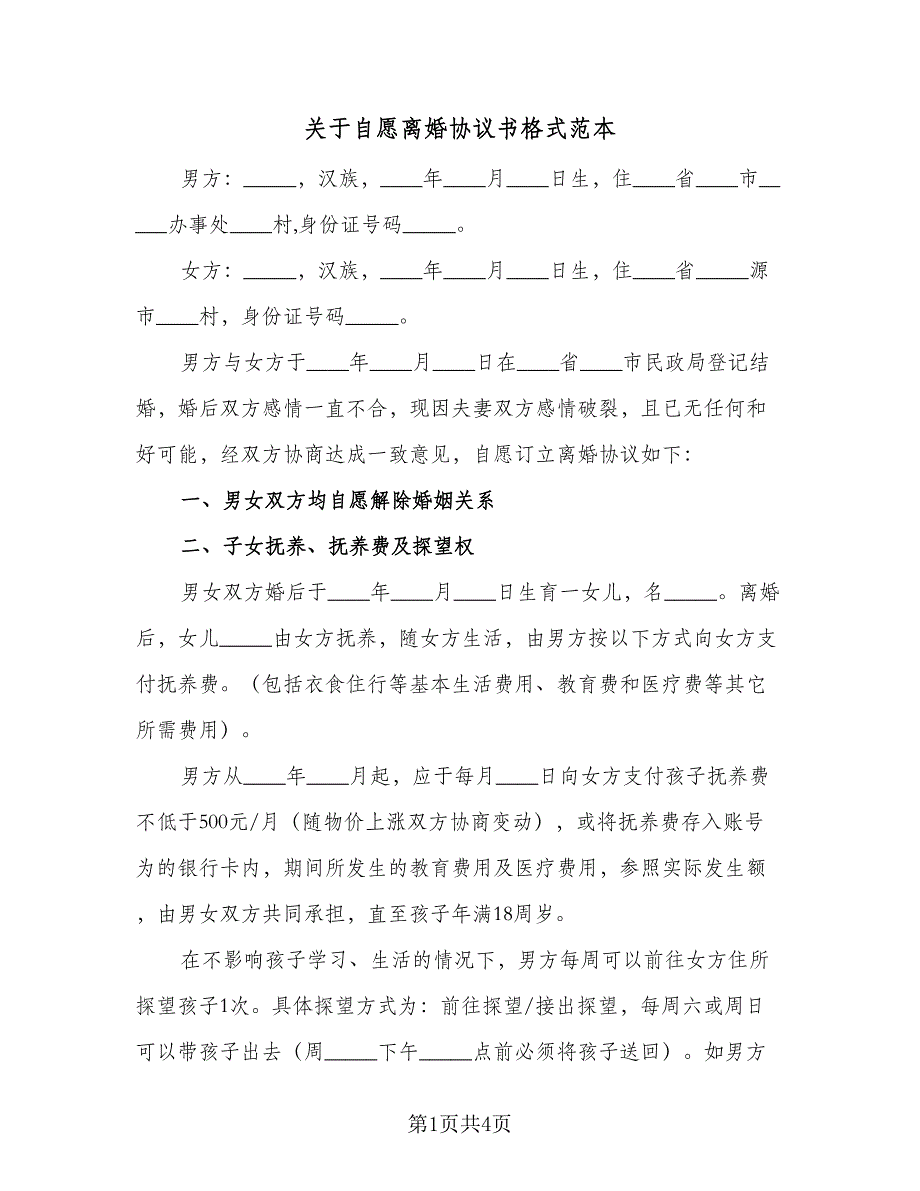 关于自愿离婚协议书格式范本
男方：_____，汉族，____年____月____日生，住____省____市__
___办事处____村,身份证号码_____。
女方：_____，汉族，____年____月____日生，住____省_____源
市____村，身份证号码_____。
男方与女方于____年____月____日在____省____市民政局登记结
婚，婚后双方感情一直不合，现因夫妻双方感情破裂，且已无任何和
好可能，经双方协商达成一致意见，自愿订立离婚协议如下：
一、男女双方均自愿解除婚姻关系
二、子女抚养、抚养费及探望权
男女双方婚后于____年____月____日生育一女儿，名_____。离婚
后，女儿_____由女方抚养，随女方生活，由男方按以下方式向女方支
付抚养费。（包括衣食住行等基本生活费用、教育费和医疗费等其它
所需费用）。
男方从____年____月起，应于每月____日向女方支付孩子抚养费
不低于500元/月（随物价上涨双方协商变动），或将抚养费存入账号
为的银行卡内，期间所发生的教育费用及医疗费用，参照实际发生额
，由男女双方共同承担，直至孩子年满18周岁。
在不影响孩子学习、生活的情况下，男方每周可以前往女方住所
探望孩子1次。具体探望方式为：前往探望/接出探望，每周六或周日
可以带孩子出去（周_____下午_____点前必须将孩子送回）。如男方
第1页共4页